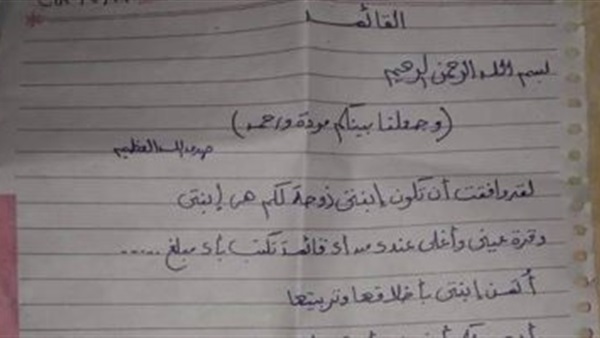 القائمة
بسم الله الرحمن الرحيم
(وجعلنا بينكم مودة ورحمه)
صدق الله العظيم
لقد وافقت أن تكون إبنتى زوجة لكم هى إبنتى
وقرة عينى وأغلى عندى من أى قائمة تكتب بأى مبلغ .....
أثمن إبنتى بأخلاقها وتربيتها